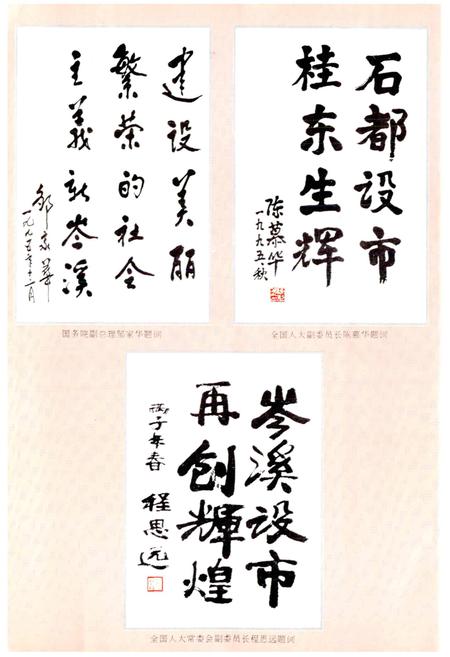 建设美丽
繁荣的社会
主义新岑溪
邹家华
一九九五年十二月
国务院副总理邹家华题词
石都设市
桂东生辉
陈慕华
一九九五·秋
全国人大副委员长陈慕华题词
岑溪设市
再创輝煌
丙子年春
程思远
全国人大常委会副委员长程思远题词